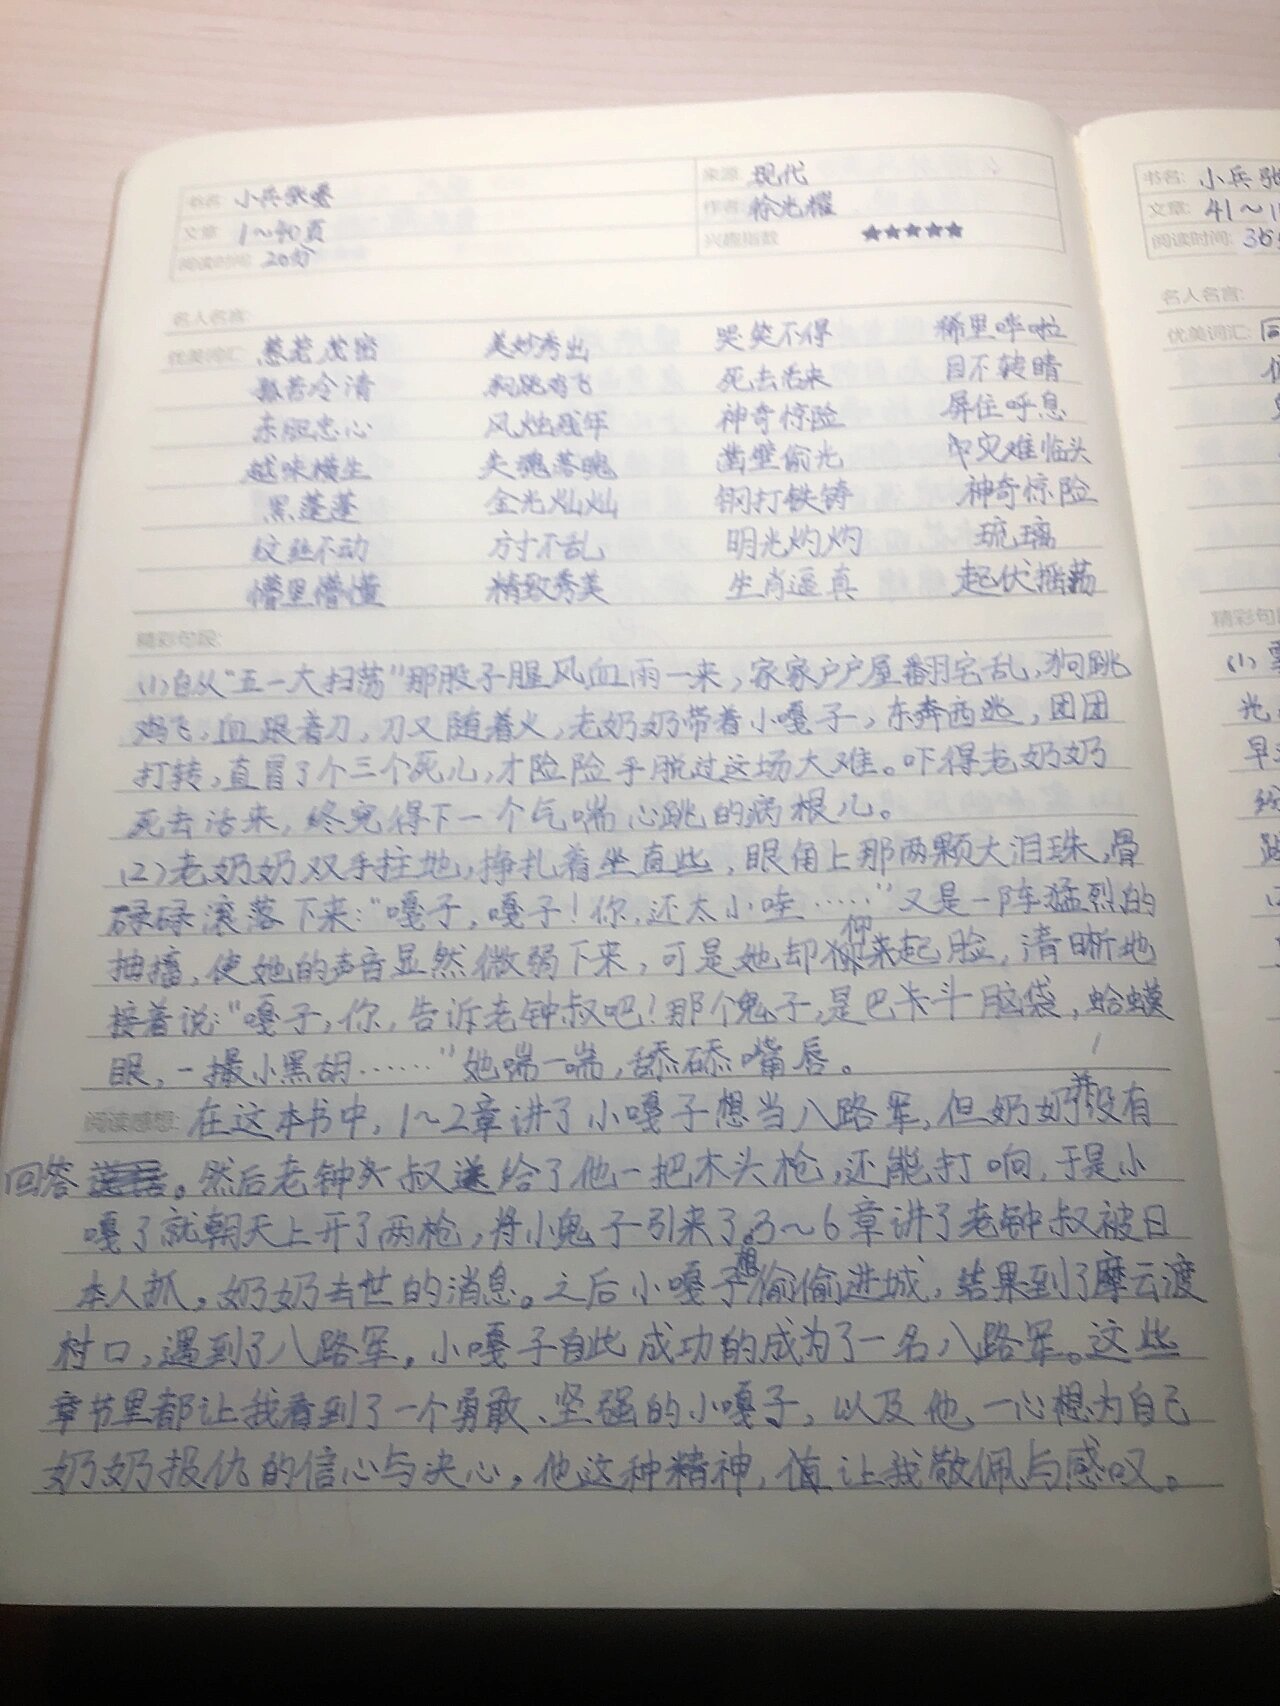 书名: 小兵张嘎
来源: 现代
文章: 1～40页
作者: 徐光耀
阅读时间: 20分
兴趣指数 ★★★★★
名人名言:
优美词汇: 葱茏茂密 美妙秀出 哭笑不得 稀里哗啦
孤苦冷清 狗跳鸡飞 死去活来 目不转睛
赤胆忠心 风烛残年 神奇惊险 屏住呼息
越味横生 失魂落魄 凿壁偷光 即灾难临头
黑蓬蓬 金光灿灿 钢打铁铸 神奇惊险
纹丝不动 方寸不乱 明光灼灼 琉璃
懵里懵懂 精致秀美 生肖逼真 起伏摇荡
精彩句段:
(1)自从“五一大扫荡”那股子腥风血雨一来，家家户户屋翻宅乱，狗跳
鸡飞，血跟着刀，刀又随着火，老奶奶带着小嘎子，东奔西逃，团团
打转，直冒了个三个死儿，才险险乎脱过这场大难。吓得老奶奶
死去活来，终究得下一个气喘心跳的病根儿。
(2)老奶奶双手拄地，挣扎着坐直些，眼角上那两颗大泪珠，骨
碌碌滚落下来：“嘎子，嘎子！你，还太小哇……”又是一阵猛烈的
抽搐，使她的声音显然微弱下来，可是她却仰起脸，清晰地
接着说：“嘎子，你，告诉老钟叔吧！那个鬼子，是巴斗脑袋，蛤蟆
眼，一撮小黑胡……”她喘一喘，舔舔嘴唇。
阅读感想: 在这本书中，1～2章讲了小嘎子想当八路军，但奶奶并没有
回答。然后老钟叔送给了他一把木头枪，还能打响，于是小
嘎子就朝天上开了两枪，将小鬼子引来了。3～6章讲了老钟叔被日
本人抓，奶奶去世的消息。之后小嘎子想偷偷进城，结果到了摩云渡
村口，遇到了八路军，小嘎子自此成功的成为了一名八路军。这些
章节里都让我看到了一个勇敢、坚强的小嘎子，以及他一心想为自己
奶奶报仇的信心与决心。他这种精神，值让我敬佩与感叹。
书名: 小兵张
文章: 41～1
阅读时间:
名人名言:
优美词汇:
精彩句段
(1)